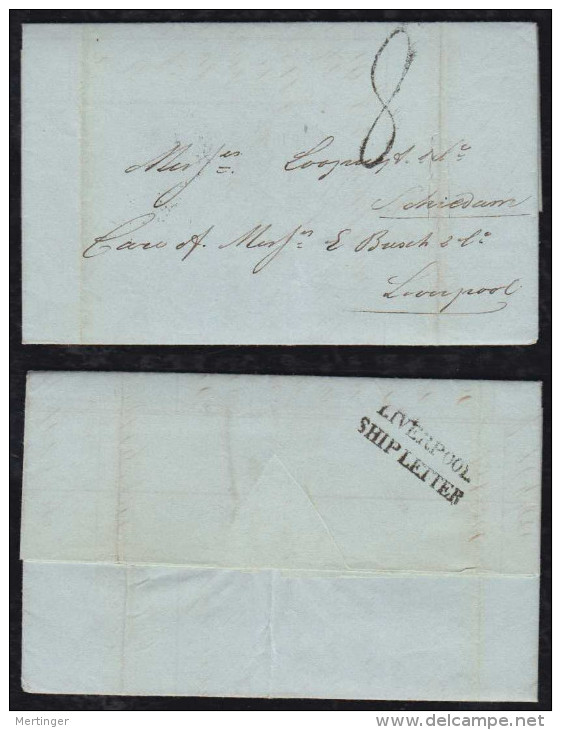 8
Messrs.
Schiedam
Care of Messrs E Busch & Co
Liverpool
LIVERPOOL
SHIP LETTER
Mertinger
delcampe.net